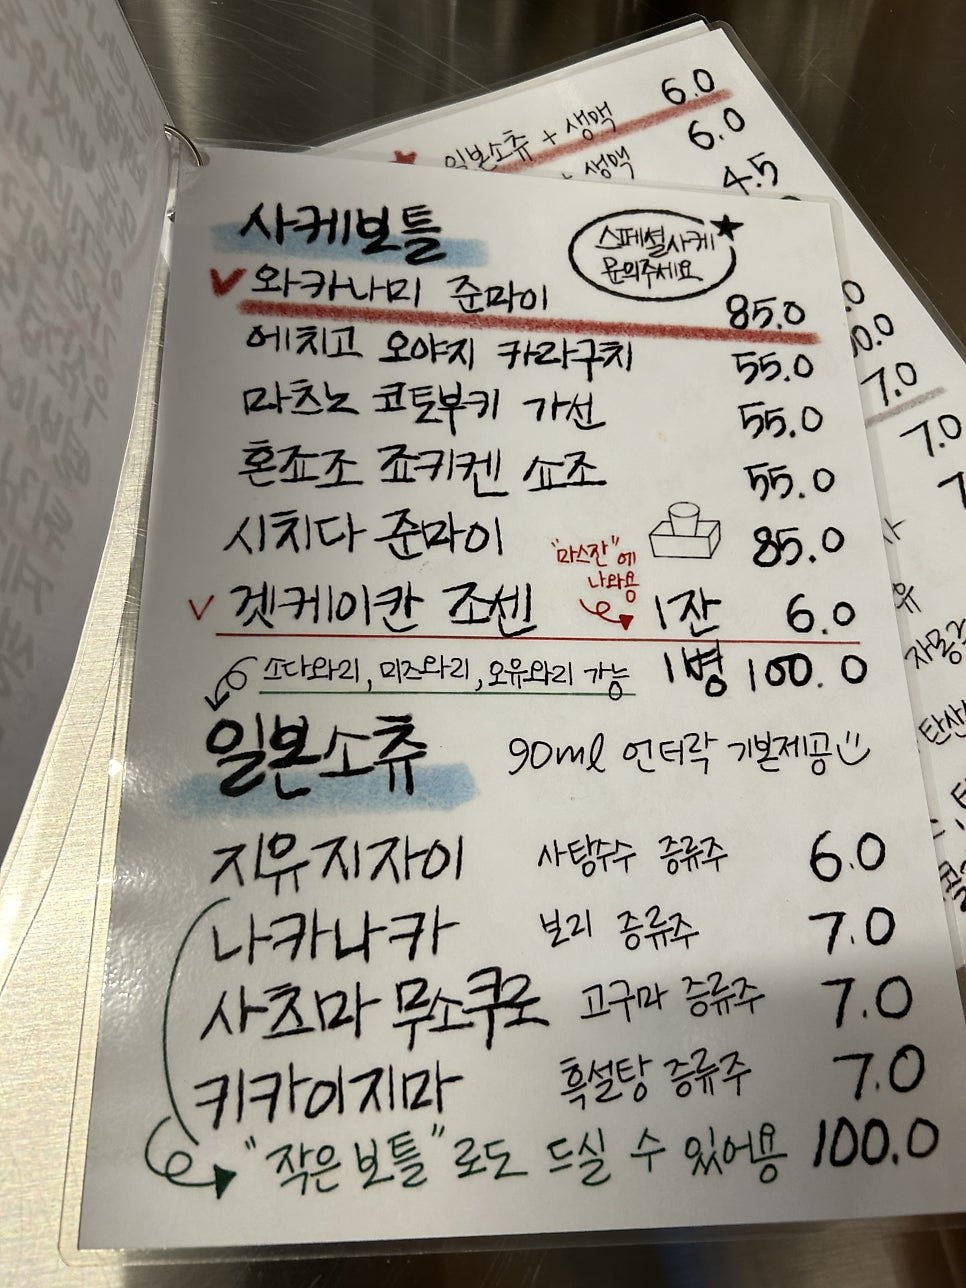 일본소츄 + 생맥 6.0
생맥 6.0
4.5
사케보틀
스페셜사케
문의주세요
와카나미 준마이 85.0
에치고 오야지 카라구치 55.0
마츠노 코토부키 가선 55.0
혼죠조 죠키켄 쇼조 55.0
시치다 준마이 85.0
"마스잔"에
나와용
겟케이칸 조센 1잔 6.0
1병 100.0
소다와리, 미즈와리, 오유와리 가능
일본소츄 90ml 언더락 기본제공
지유지자이 사탕수수 증류주 6.0
나카나카 보리 증류주 7.0
사츠마 무소쿠로 고구마 증류주 7.0
키카이지마 흑설탕 증류주 7.0
"작은 보틀"로도 드실 수 있어용 100.0
7.0
7.0
탄산